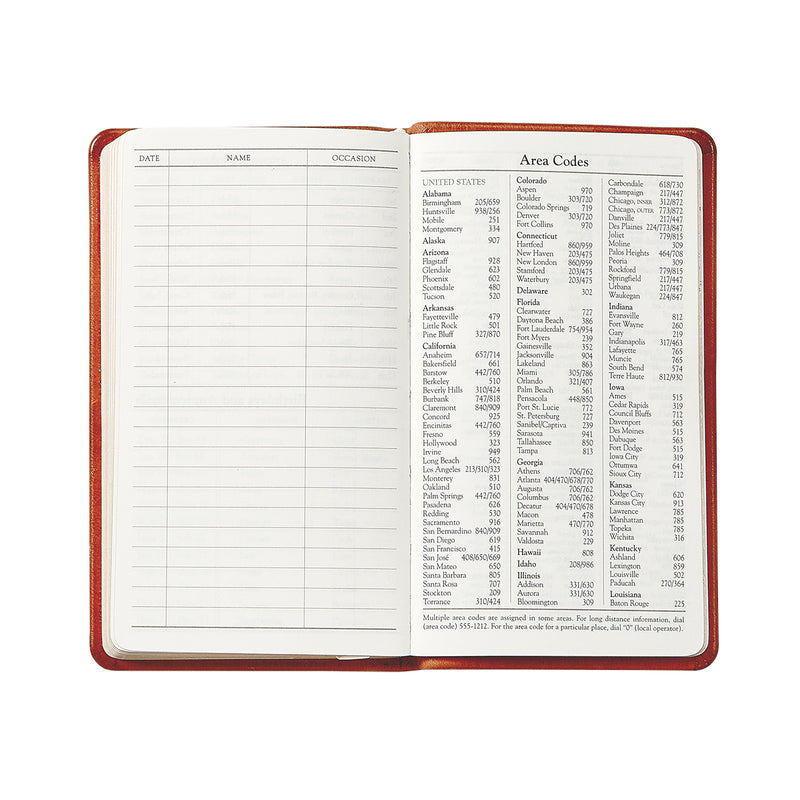 DATE NAME OCCASION
Area Codes
UNITED STATES
Alabama
Birmingham 205/659
Huntsville 938/256
Mobile 251
Montgomery 334
Alaska 907
Arizona
Flagstaff 928
Glendale 623
Phoenix 602
Scottsdale 480
Tucson 520
Arkansas
Fayetteville 479
Little Rock 501
Pine Bluff 327/870
California
Anaheim 657/714
Bakersfield 661
Barstow 442/760
Berkeley 510
Beverly Hills 310/424
Burbank 747/818
Claremont 840/909
Concord 925
Encinitas 442/760
Fresno 559
Hollywood 323
Irvine 949
Long Beach 562
Los Angeles 213/310/323
Monterey 831
Oakland 510
Palm Springs 442/760
Pasadena 626
Redding 530
Sacramento 916
San Bernardino 840/909
San Diego 619
San Francisco 415
San José 408/650/669
San Mateo 650
Santa Barbara 805
Santa Rosa 707
Stockton 209
Torrance 310/424
Colorado
Aspen 970
Boulder 303/720
Colorado Springs 719
Denver 303/720
Fort Collins 970
Connecticut
Hartford 860/959
New Haven 203/475
New London 860/959
Stamford 203/475
Waterbury 203/475
Delaware 302
Florida
Clearwater 727
Daytona Beach 386
Fort Lauderdale 754/954
Fort Myers 239
Gainesville 352
Jacksonville 904
Lakeland 863
Miami 305/786
Orlando 321/407
Palm Beach 561
Pensacola 448/850
Port St. Lucie 772
St. Petersburg 727
Sanibel/Captiva 239
Sarasota 941
Tallahassee 850
Tampa 813
Georgia
Athens 706/762
Atlanta 404/470/678/770
Augusta 706/762
Columbus 706/762
Decatur 404/470/678
Macon 478
Marietta 470/770
Savannah 912
Valdosta 229
Hawaii 808
Idaho 208/986
Illinois
Addison 331/630
Aurora 331/630
Bloomington 309
Carbondale 618/730
Champaign 217/447
Chicago, INNER 312/872
Chicago, OUTER 773/872
Danville 217/447
Des Plaines 224/773/847
Joliet 779/815
Moline 309
Palos Heights 464/708
Peoria 309
Rockford 779/815
Springfield 217/447
Urbana 217/447
Waukegan 224/847
Indiana
Evansville 812
Fort Wayne 260
Gary 219
Indianapolis 317/463
Lafayette 765
Muncie 765
South Bend 574
Terre Haute 812/930
Iowa
Ames 515
Cedar Rapids 319
Council Bluffs 712
Davenport 563
Des Moines 515
Dubuque 563
Fort Dodge 515
Iowa City 319
Ottumwa 641
Sioux City 712
Kansas
Dodge City 620
Kansas City 913
Lawrence 785
Manhattan 785
Topeka 785
Wichita 316
Kentucky
Ashland 606
Lexington 859
Louisville 502
Paducah 270/364
Louisiana
Baton Rouge 225
Multiple area codes are assigned in some areas. For long distance information, dial
(area code) 555-1212. For the area code for a particular place, dial "0" (local operator).